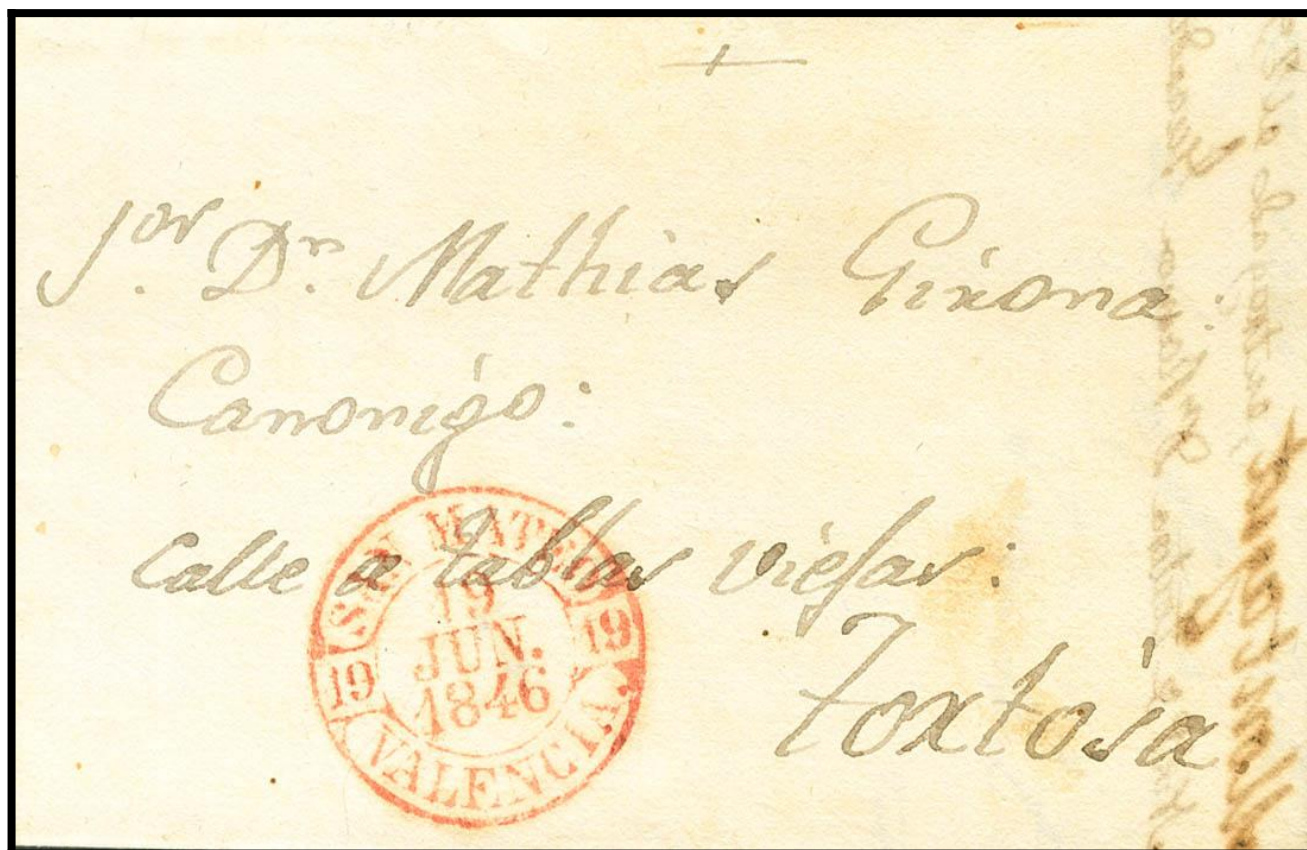 Sor. Dn. Mathias Girona:
Canonigo:
Calle de tablas viejas:
Tortosa.
SAN MATEO
19
JUN.
1846
19
19
VALENCIA.